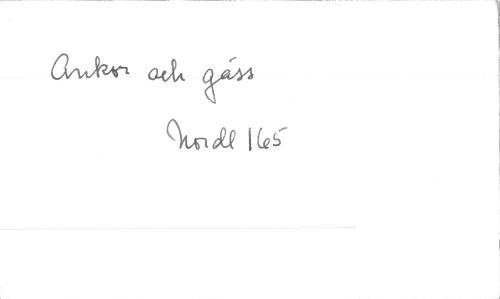 Ankor och gäss
Nordl 165